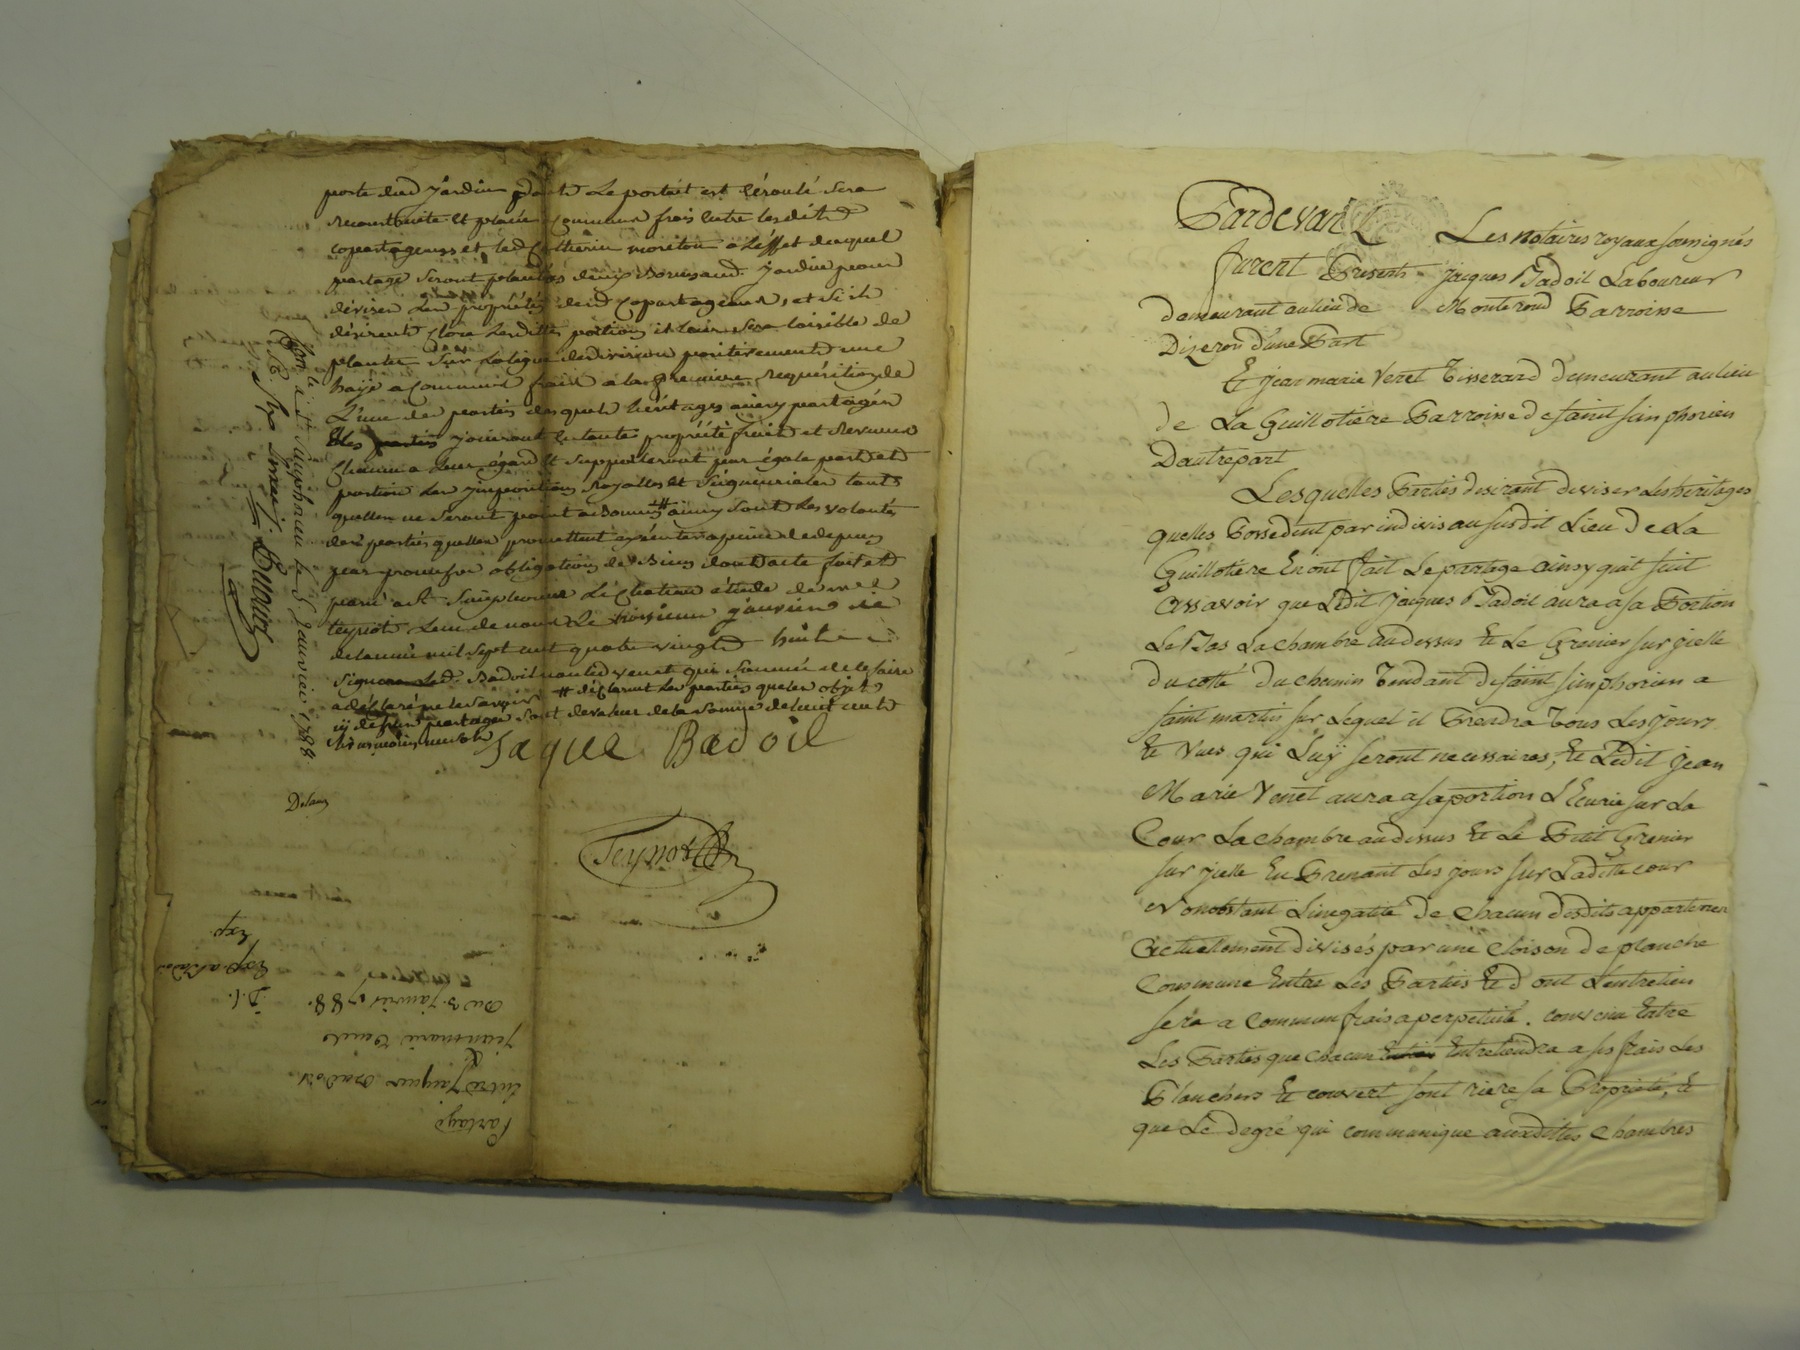 porte dud jardin dont le portail est écroulé sera
reconstruite et placée a communs frais entre lesdits
copartageurs et led Catherin moreton a l'éffet duquel
partage seront plantées denys Bornes aud. jardin pour
déviser les propriétés desd copartageurs, et si ils
désirent clore lesdittes portions il leur sera loisible de
planter sur la ligne de division positivement une
haÿe a communs frais a la premiere requisition de
L'une des parties desquels héritages ainsy partagés
les parties jouiront en toute propriété fruits et revenus
chacun a leur égard et supporteront par égale part et
portion les jmpositions Royalles et Seigneuriales tant
quelles ne seront point # ainsy sont les volontés
des parties quelles promettent exécuter a peine de depens
par promesse obligations de Biens dont acte fait et
passé a St Simphorien Le Chateau étude de me
teyriot L'un de nous Le troisieme janvier
de lannée mil sept cent quatre vingt huit
signé led. Badoil non led venet qui sommé de le faire
a déclaré ne le savoir # déclarant les parties que les objets
cy dessus partagés sont de valeur de la somme de huit cents
Jaque Badoil
Delam
Teyriot
a St Simphorien le 5 Janvier 1788.
Partage
Entre Jacques Badoil
&
jean marie Venet
Du 3. Janvier 1788.
D. C.
Exp. a Badoil
Exp.
Pardevant Les Notaires royaux soussignés
furent Presents Jacques Badoil Laboureur
demeurant au lieu de Monterond Parroisse
Dizeron d'une Part
Et jean marie Venet Tisserand demeurant au lieu
de La Guillotiere Parroisse de saint simphorien
D'autre part
Lesquelles Parties desirant deviser Les héritages
quelles Possedent par indivis au susdit Lieu de La
Guillotiere En ont fait Le partage ainsy quil suit
assavoir que Ledit Jacques Badoil aura a sa Portion
Le Bas La chambre au dessus Et Le Grenier sur jcelle
du cotté du chemin Tendant de saint simphorien a
saint martin sur Lequel il Prendra Tous Les jours
Et Vues qui Luy seront necessaires, Et Ledit jean
Marie Venet aura a sa portion L'Ecurie sur La
Cour La chambre au dessus Et Le Petit Grenier
sur jcelle En Prenant Les jours sur Ladite cour
Nonobstant Linegalité de chacun desdits appartemen
actuellement divisés par une cloison de planche
Commune Entre Les Parties Et dont L'entretien
sera a commun frais a perpetuité. convenu Entre
Les Parties que chacun Entretiendra a ses frais Les
Planchers Et couvert sont riere sa Proprieté, Et
que Le degré qui communique auxdittes chambres